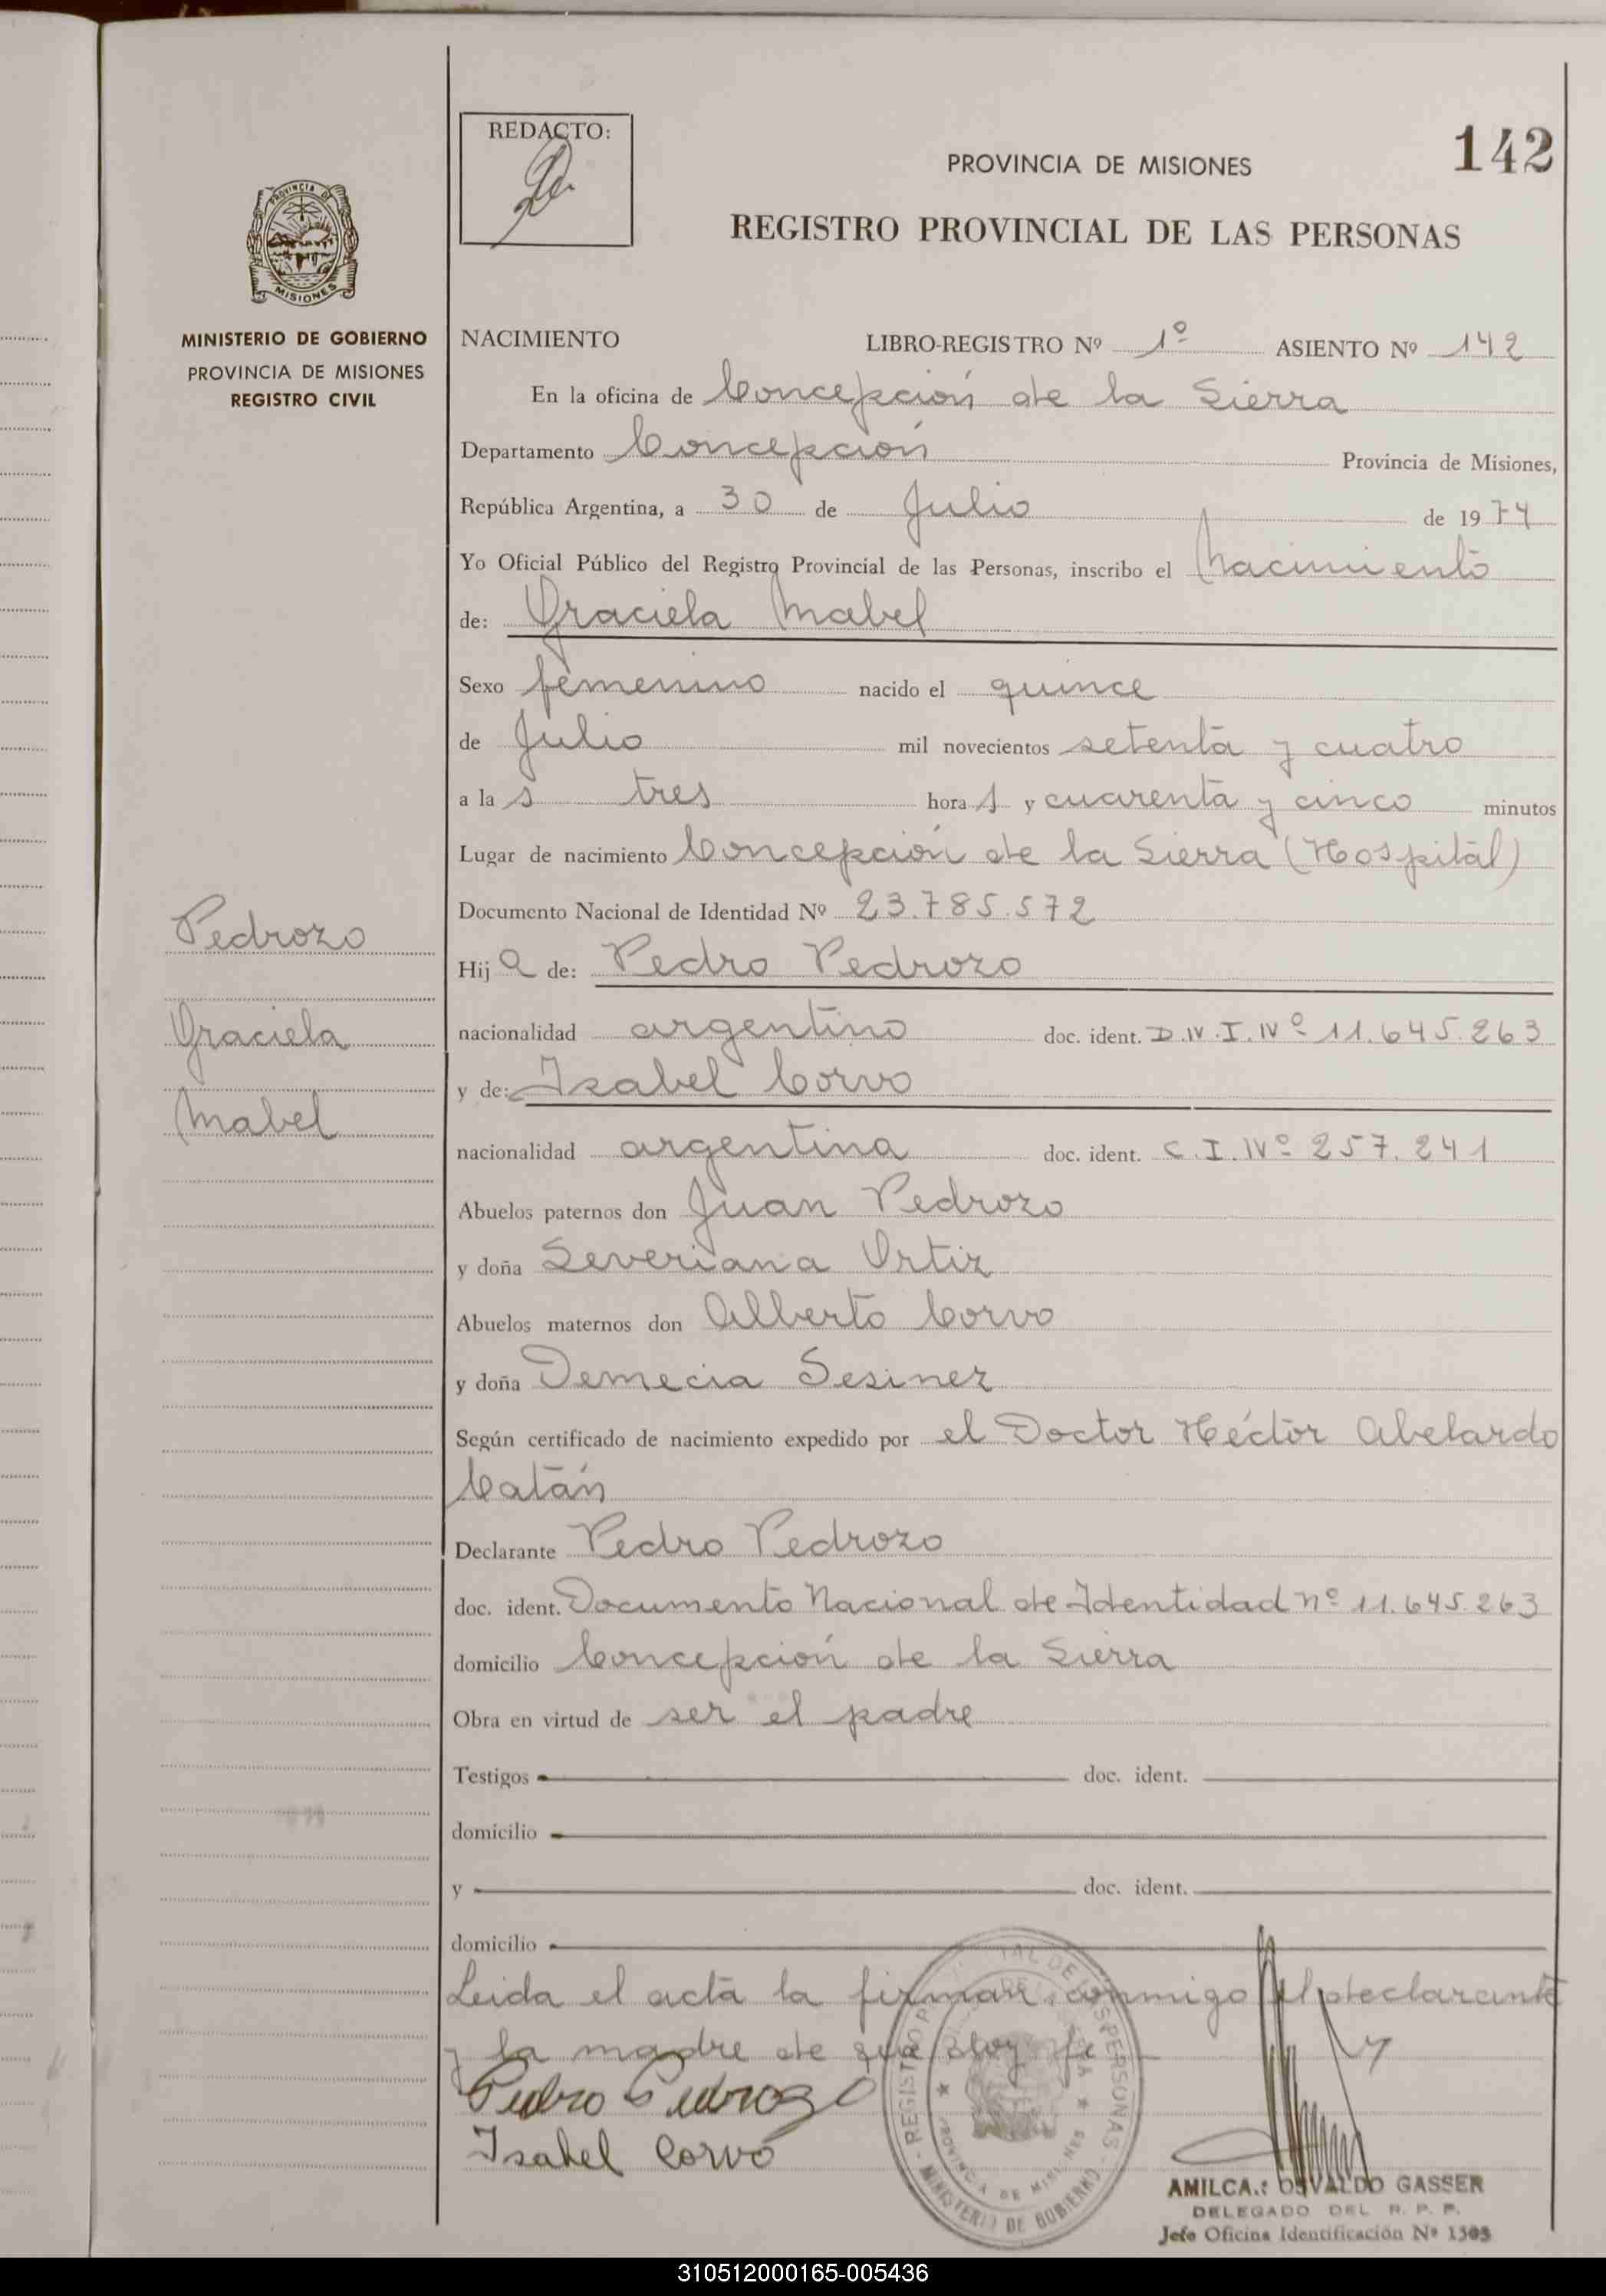 142
REDACTO:
PROVINCIA DE MISIONES
REGISTRO PROVINCIAL DE LAS PERSONAS
PROVINCIA DE
MISIONES
MINISTERIO DE GOBIERNO
PROVINCIA DE MISIONES
REGISTRO CIVIL
NACIMIENTO LIBRO-REGISTRO Nº 1º ASIENTO Nº 142
En la oficina de Concepción de la Sierra
Departamento Concepción Provincia de Misiones,
República Argentina, a 30 de Julio de 1974
Yo Oficial Público del Registro Provincial de las Personas, inscribo el Nacimiento
de: Graciela Mabel
Sexo femenino nacido el quince
de Julio mil novecientos setenta y cuatro
a la s tres hora s y cuarenta y cinco minutos
Lugar de nacimiento Concepción de la Sierra (Hospital)
Documento Nacional de Identidad Nº 23.785.572
Pedrozo
Graciela
Mabel
Hij a de: Pedro Pedrozo
nacionalidad argentino doc. ident. D.N.I.Nº 11.645.263
y de: Isabel Corvo
nacionalidad argentina doc. ident. C.I.Nº 257.241
Abuelos paternos don Juan Pedrozo
y doña Severiana Ortiz
Abuelos maternos don Alberto Corvo
y doña Demecia Sesinez
Según certificado de nacimiento expedido por el Doctor Héctor Abelardo
Catán
Declarante Pedro Pedrozo
doc. ident. Documento Nacional de Identidad nº 11.645.263
domicilio Concepción de la Sierra
Obra en virtud de ser el padre
Testigos doc. ident.
domicilio
y doc. ident.
domicilio
Leida el acta la firman conmigo el declarante
y la madre de que doy fe
Pedro Pedrozo
Isabel Corvo
REGISTRO DE LAS PERSONAS - MINISTERIO DE GOBIERNO -
PROVINCIA DE MISIONES
AMILCA.: OSVALDO GASSER
DELEGADO DEL R. P. P.
Jefe Oficina Identificación Nº 1505
310512000165-005436